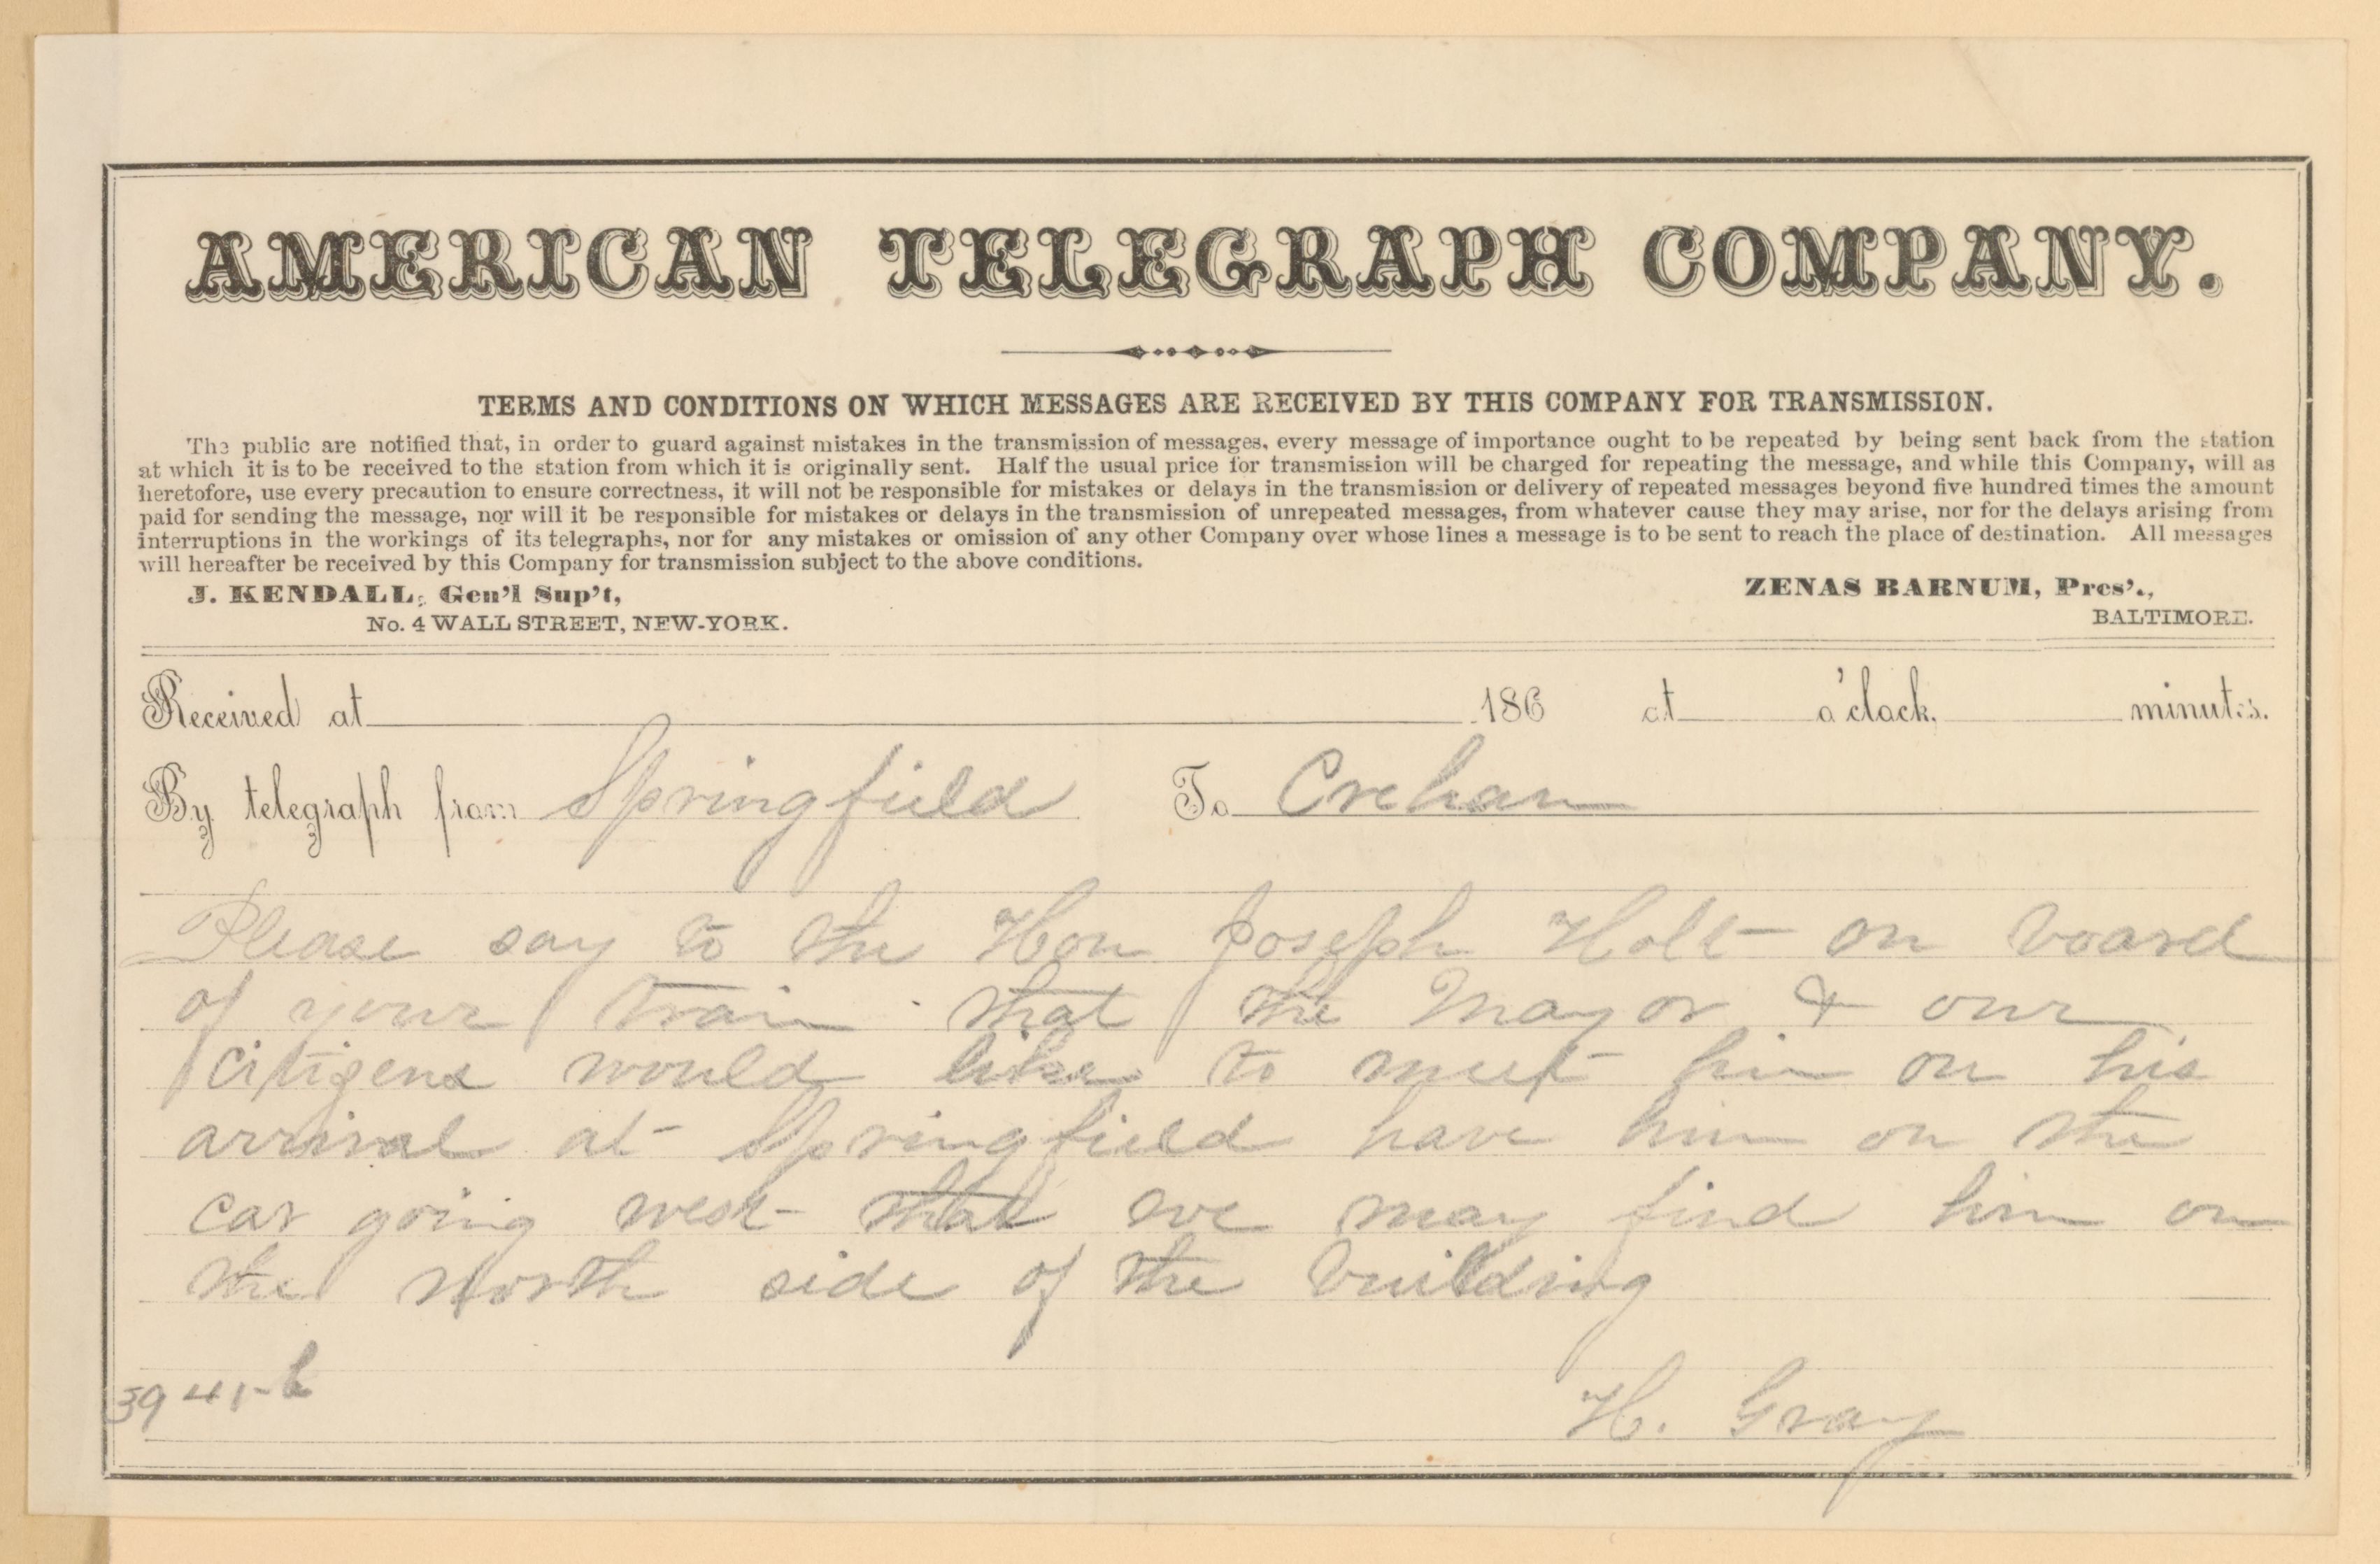 AMERICAN TELEGRAPH COMPANY.
TERMS AND CONDITIONS ON WHICH MESSAGES ARE RECEIVED BY THIS COMPANY FOR TRANSMISSION.
The public are notified that, in order to guard against mistakes in the transmission of messages, every message of importance ought to be repeated by being sent back from the station
at which it is to be received to the station from which it is originally sent. Half the usual price for transmission will be charged for repeating the message, and while this Company, will as
heretofore, use every precaution to ensure correctness, it will not be responsible for mistakes or delays in the transmission or delivery of repeated messages beyond five hundred times the amount
paid for sending the message, nor will it be responsible for mistakes or delays in the transmission of unrepeated messages, from whatever cause they may arise, nor for the delays arising from
interruptions in the workings of its telegraphs, nor for any mistakes or omission of any other Company over whose lines a message is to be sent to reach the place of destination. All messages
will hereafter be received by this Company for transmission subject to the above conditions.
J. KENDALL, Gen'l Sup't, ZENAS BARNUM, Pres'.,
No. 4 WALL STREET, NEW-YORK. BALTIMORE.
Received at 186 at o'clock, minutes.
By telegraph from Springfield To Crehan
Please say to the Hon Joseph Holt on board
of your train that the Mayor & our
citizens would like to meet him on his
arrival at Springfield have him on the
car going west that we may find him on
the North side of the building
39
H. Gray